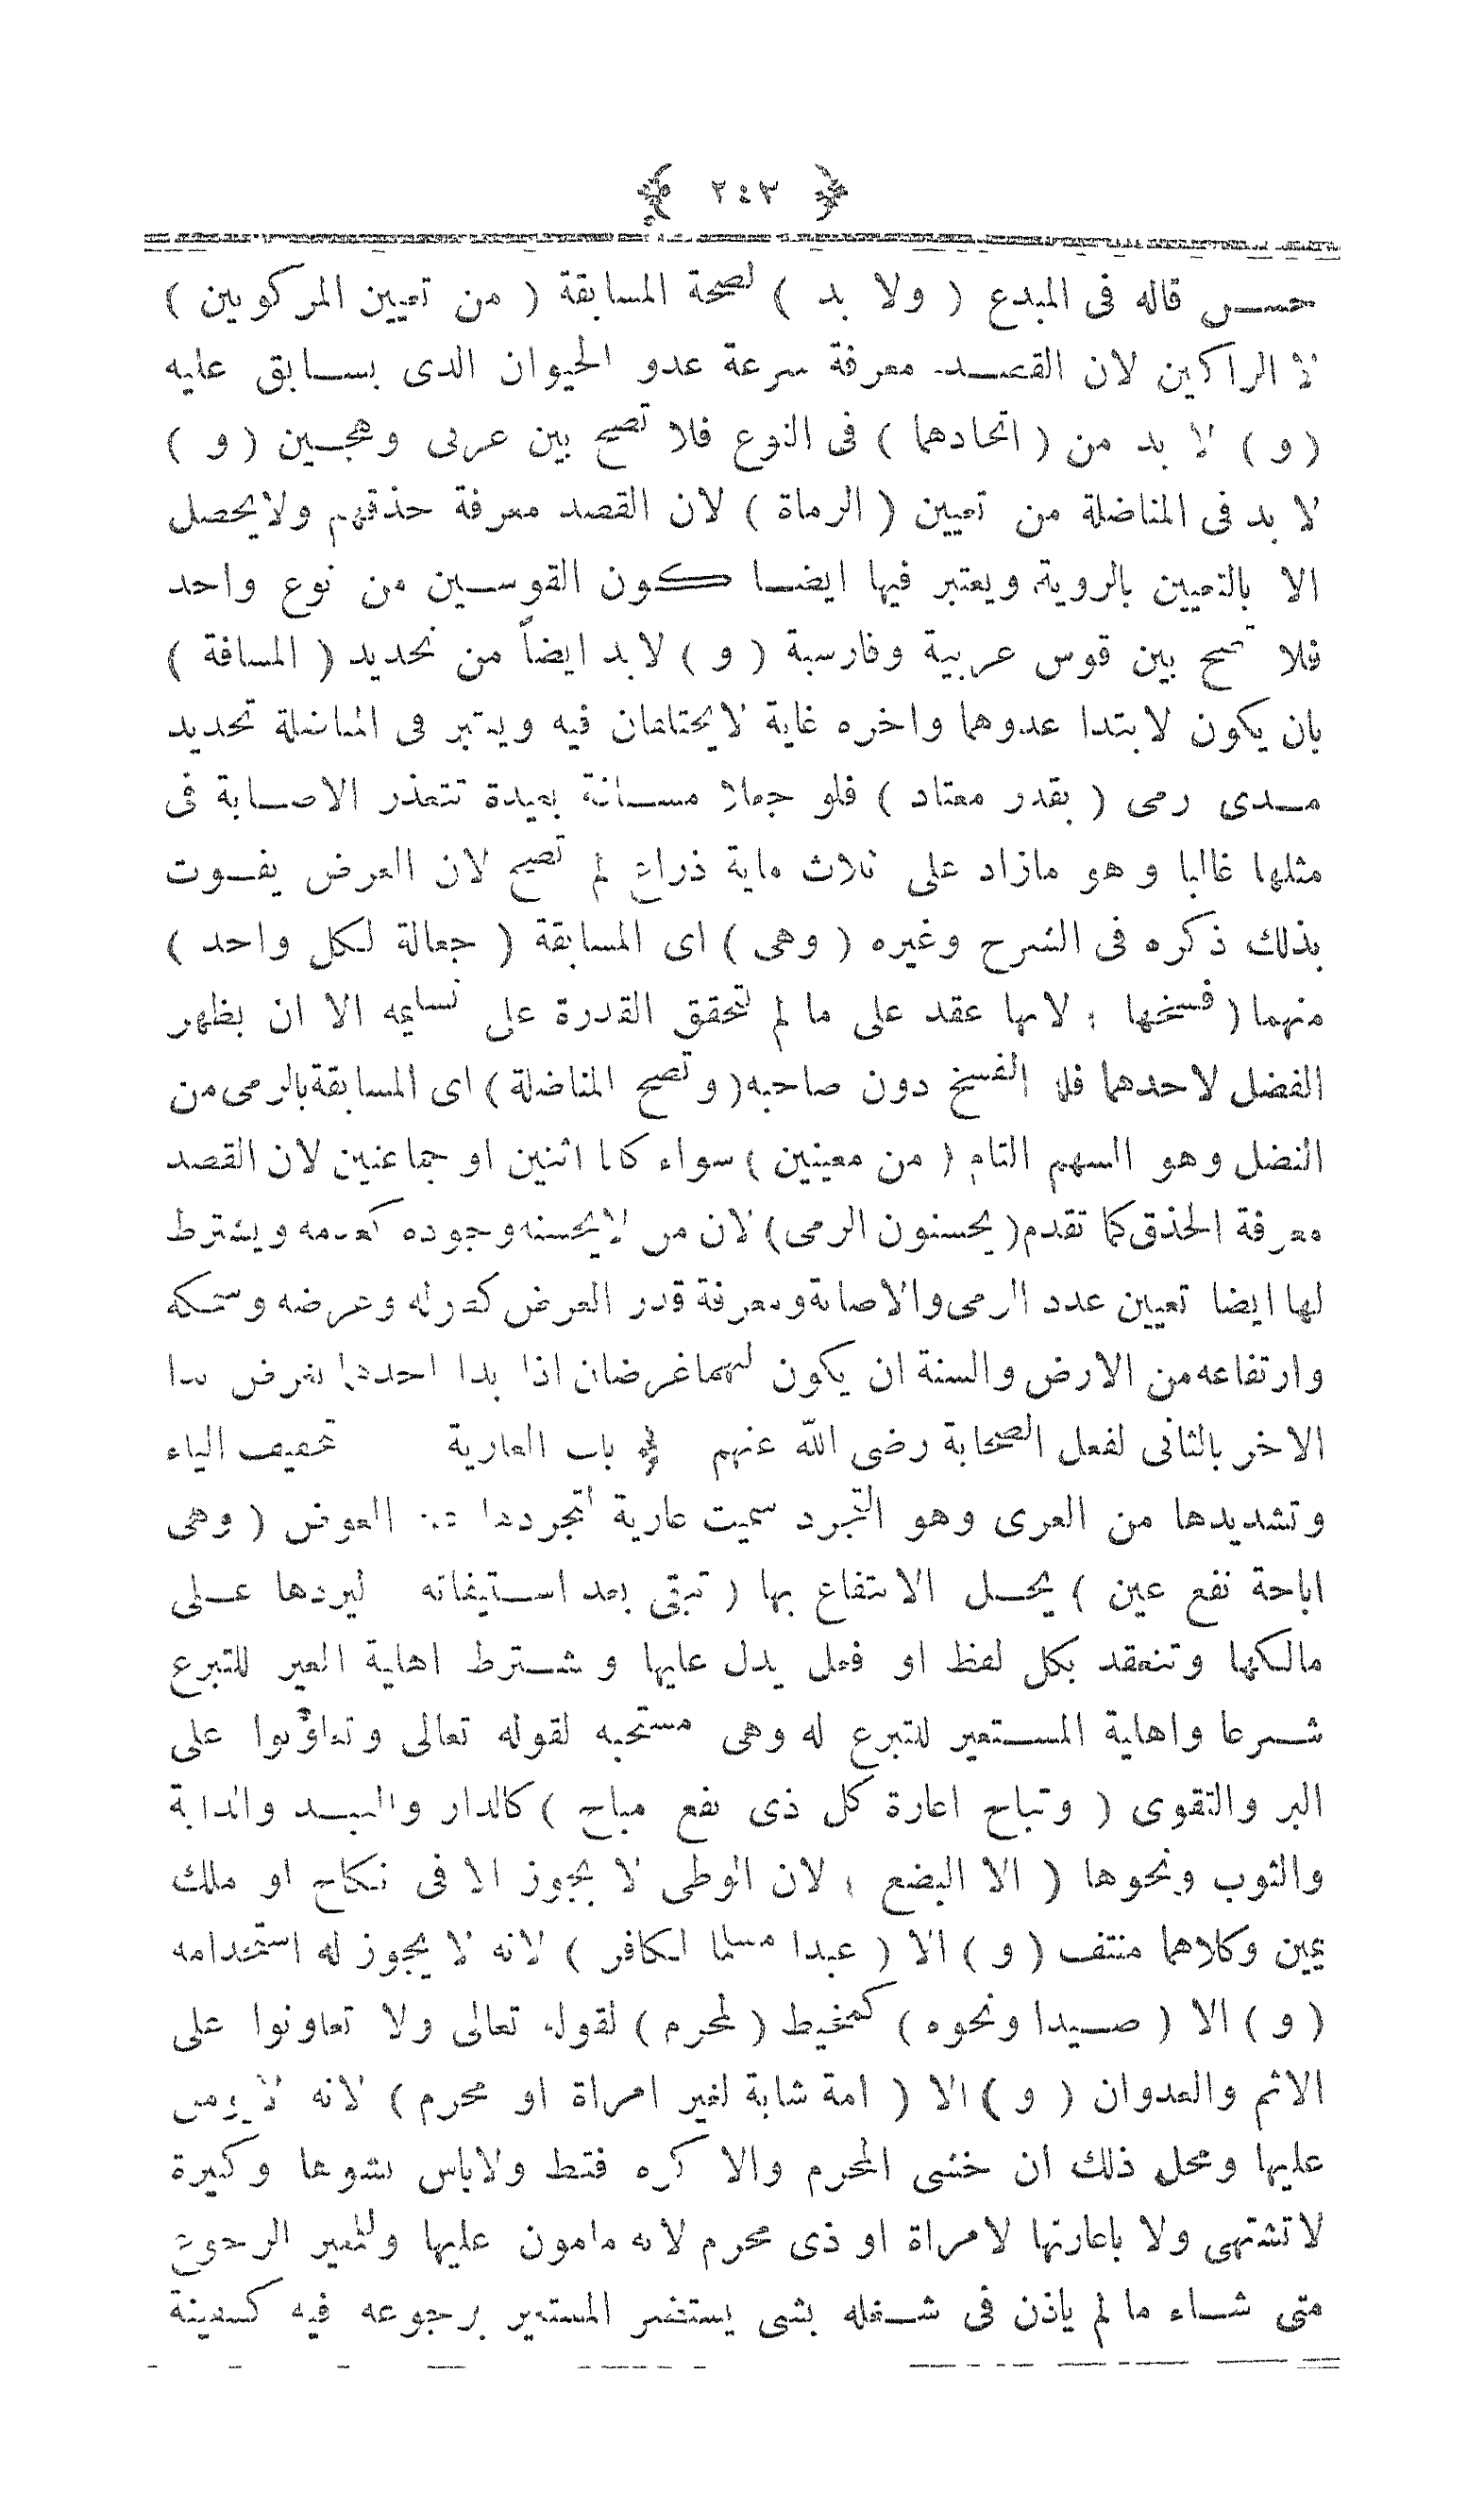 ﴿ ٢٤٣ ﴾
حسن قاله فى المبدع ( ولا بد ) لصحة المسابقة ( من تعيين المركوبين )
لا الراكبين لان القصد معرفة سرعة عدو الحيوان الذى يسابق عليه
( و ) لا بد من ( اتحادهما ) فى النوع فلا تصح بين عربى وهجين ( و )
لا بد فى المناضلة من تعيين ( الرماة ) لان القصد معرفة حذقهم ولا يحصل
الا بالتعيين بالروية ويعتبر فيها ايضا كون القوسين من نوع واحد
فلا تصح بين قوس عربية وفارسية ( و ) لا بد ايضاً من تحديد ( المسافة )
بان يكون لابتدا عدوهما واخره غاية لا يختلفان فيه ويعتبر فى المناضلة تحديد
مدى رمى ( بقدر معتاد ) فلو جعلا مسافة بعيدة تتعذر الاصابة فى
مثلها غالبا وهو مازاد على ثلاث ماية ذراع لم تصح لان الغرض يفوت
بذلك ذكره فى الشرح وغيره ( وهى ) اى المسابقة ( جعالة لكل واحد )
منهما ( فسخها ) لانها عقد على ما لم تتحقق القدرة على تسليمه الا ان يظهر
الفضل لاحدهما فله الفسخ دون صاحبه ( وتصح المناضلة ) اى المسابقة بالرمى من
النضل وهو السهم التام ( من معينين ) سواء كانا اثنين او جماعتين لان القصد
معرفة الحذق كما تقدم ( يحسنون الرمى ) لان من لا يحسنه وجوده كعدمه ويشترط
لها ايضا تعيين عدد الرمى والاصابة ومعرفة قدر الغرض كطوله وعرضه وسمكه
وارتفاعه من الارض والسنة ان يكون لهما غرضان اذا بدا احدهما بغرض بدا
الاخر بالثانى لفعل الصحابة رضى الله عنهم ﴿ باب العارية تخفيف الياء
وتشديدها من العرى وهو التجرد سميت عارية لتجردها عن العوض ( وهى
اباحة نفع عين ) يحل الانتفاع بها ( تبقى بعد استيفائه ليردها على
مالكها وتنعقد بكل لفظ او فعل يدل عليها وشترط اهلية المعير للتبرع
شرعا واهلية المستعير للتبرع له وهى مستحبه لقوله تعالى وتعاونوا على
البر والتقوى ( وتباح اعارة كل ذى نفع مباح ) كالدار والعبد والدابة
والثوب ونحوها ( الا البضع ) لان الوطى لا يجوز الا فى نكاح او ملك
يمين وكلاهما منتف ( و ) الا ( عبدا مسلما لكافر ) لانه لا يجوز له استخدامه
( و ) الا ( صيدا ونحوه ) كمخيط ( لمحرم ) لقوله تعالى ولا تعاونوا على
الاثم والعدوان ( و ) الا ( امة شابة لغير امراة او محرم ) لانه لا يومن
عليها ومحل ذلك ان خشى المحرم والا كره فقط ولاباس بشوها وكبيرة
لا تشتهى ولا باعارتها لامراة او ذى محرم لانه مامون عليها وللمعير الرجوع
متى شاء ما لم ياذن فى شغله بشى يستضر المستعير برجوعه فيه كسفينة